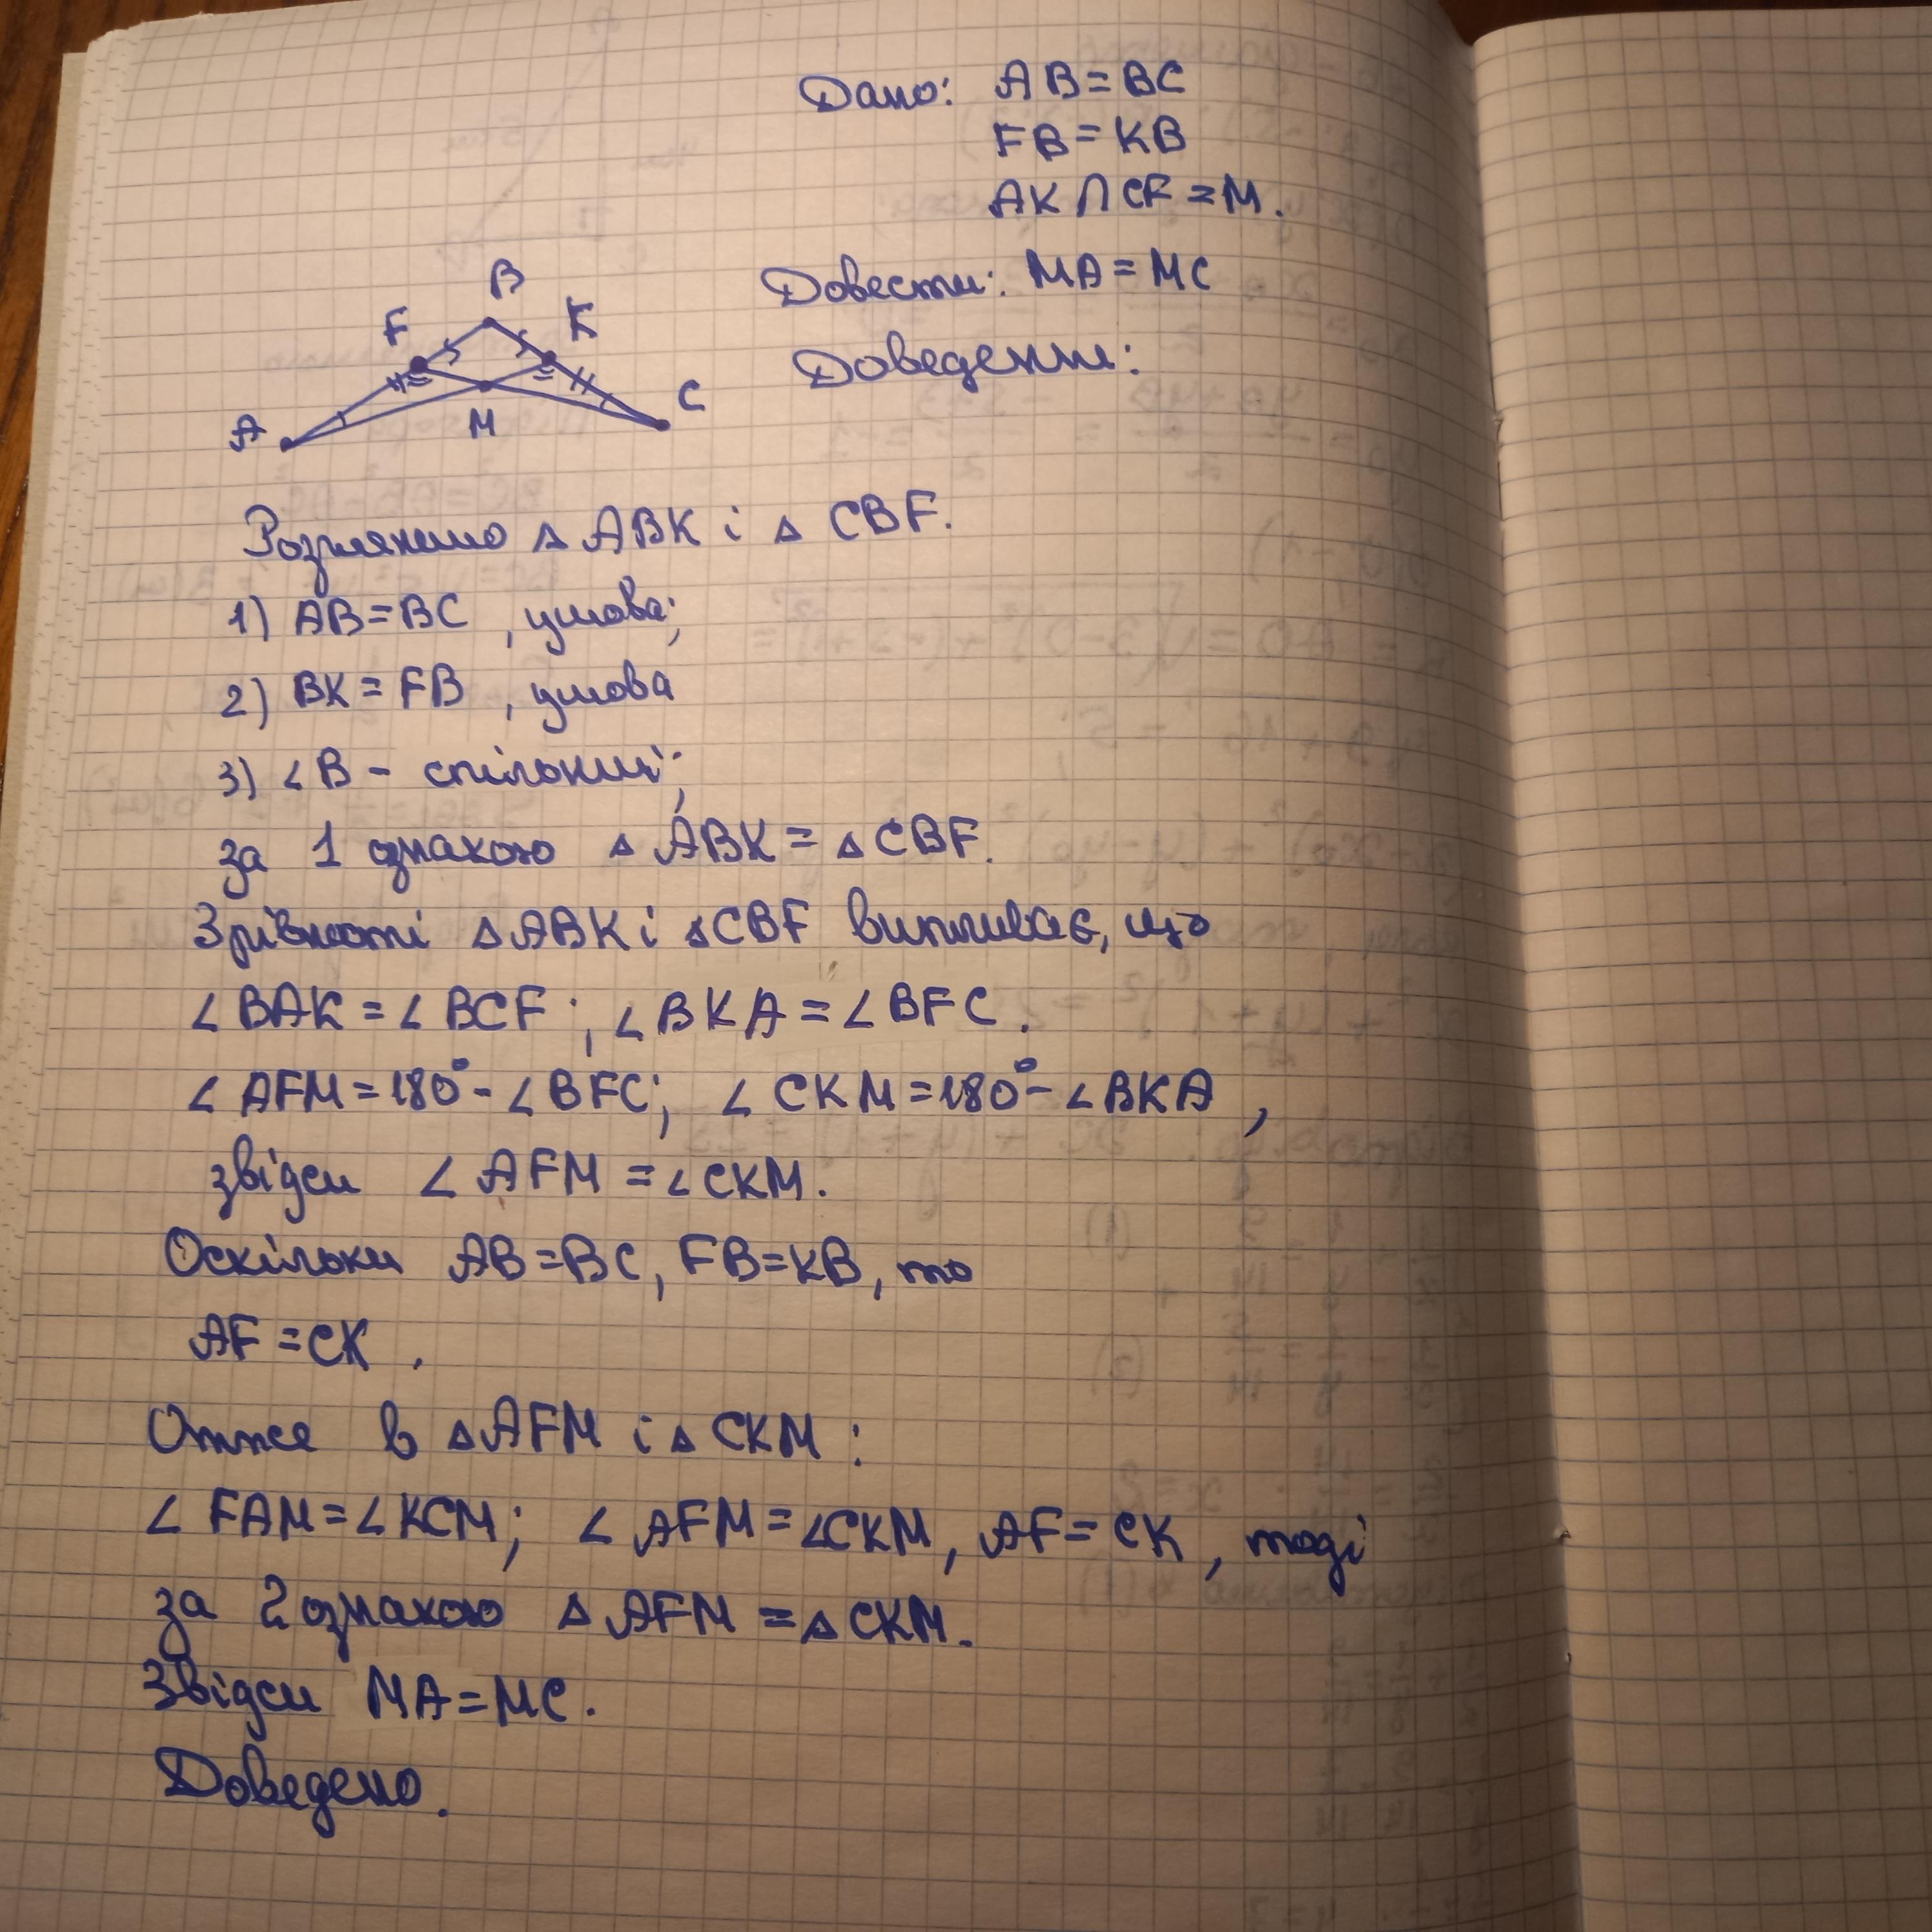 Дано: AB = BC
FB = KB
AK ∩ CF = M.
Довести: MA = MC
Доведення:
B
F
K
A
M
C
Розглянемо △ ABK і △ CBF.
1) AB = BC , умова;
2) BK = FB , умова
3) ∠B - спільний;
за 1 ознакою △ ABK = △ CBF.
З рівності △ABK і △CBF випливає, що
∠BAK = ∠BCF ; ∠BKA = ∠BFC .
∠AFM = 180° - ∠BFC; ∠CKM = 180° - ∠BKA ,
звідси ∠AFM = ∠CKM.
Оскільки AB = BC, FB = KB, то
AF = CK .
Отже в △AFM і △ CKM :
∠FAM = ∠KCM; ∠AFM = ∠CKM, AF = CK , тоді
за 2 ознакою △ AFM = △ CKM.
Звідси MA = MC.
Доведено.